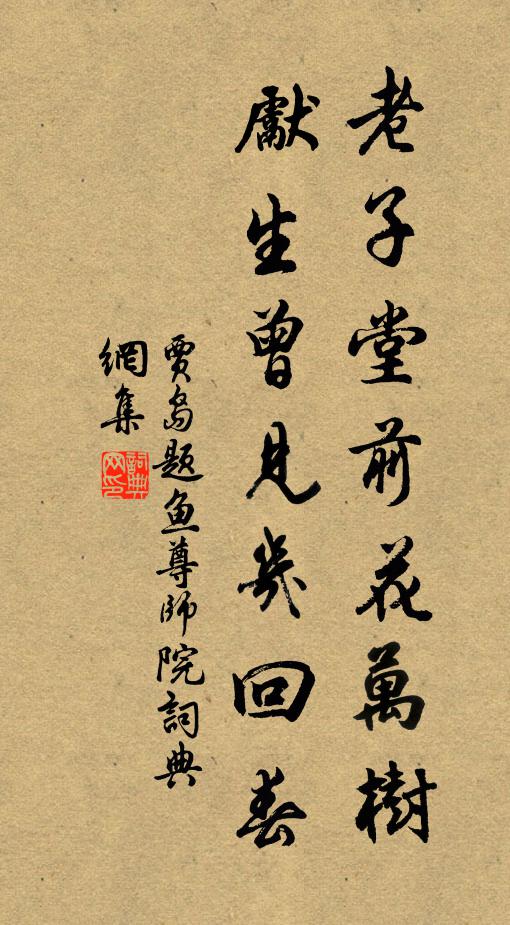 老子堂前花萬樹
獻生曾見幾回春
賈島題魚尊師院詞典
網集
詞典
网印